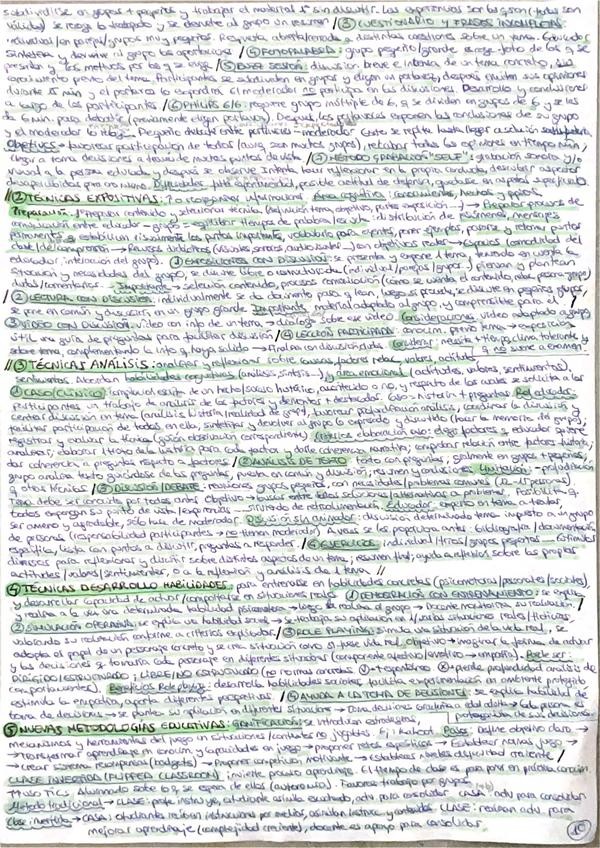 se recoge lo trabajado y se devuelve al grupo un resumen / ③ CUESTIONARIO Y FRASES INCOMPLETAS
individual/en parejas/grupos muy pequeños. Respuesta abierta/cerrada a distintas cuestiones sobre un tema. Educador
sintetiza y devuelve al grupo las aportaciones / ④ FOTOPALABRA: grupo pequeño/grande escoge foto de las q se
presentan y los motivos por los q se elige / ⑤ BUZZ SESSION: discusión breve e intensa de un tema concreto, sin
conocimiento previo del tema. Participantes se subdividen en grupos y eligen un portavoz, después emiten sus opiniones
durante 15 min y el portavoz lo expondrá. El moderador no participa en las discusiones. Desarrollo y conclusiones
a cargo de los participantes / ⑥ PHILIPS 6/6: requiere grupo múltiple de 6, q se dividen en grupos de 6 y se les
da 6 min. para debatir (previamente eligen portavoz). Después los portavoces exponen las conclusiones de su grupo
y el moderador lo Pequeño debate entre portavoces - moderador. Esto se repite hasta llegar a solución satisfactoria.
Objetivos → favorecer participación de todos (aunq sean muchos grupos), recabar todas las opiniones en tiempo mín,
llegar a toma decisiones a través de muchos puntos de vista. / ⑦ MÉTODO GRABACIÓN "SELF": grabación sonora y/o
visual a la persona educada y después se observe. Intenta hacer reflexionar en la propia conducta, descubrir aspectos
desapercibidos para uno mismo. Dificultades: falta espontaneidad, posible actitud de defensa, quedarse en aspectos superficiales.
// ② TÉCNICAS EXPOSITIVAS: Área cognitiva: conocimientos, hechos y teorías.
Preparación: 1º Preparar contenido y seleccionar técnica (definición tema, objetivo, partes exposición...) → Preparar proceso de
comunicación entre educador - grupo → distribución de resúmenes, mensajes
→ establecer visualmente los puntos importantes, vocabulario para oyentes, poner ejemplos, pausas y retomar puntos
clave/ → Medios didácticos (visuales, sonoros, audiovisuales...) con objetivos reales → Espacios (comodidad del
educador, interacción del grupo). ① EXPOSICIONES CON DISCUSIÓN: se presenta y expone 1 tema teniendo en cuenta la
situación y necesidades del grupo, se discute libre o estructurada (individual/parejas/grupo...) piensan y plantean
dudas/comentarios. Importante → selección contenido, procesos comunicación
/ ② LECTURA CON DISCUSIÓN: individualmente se da documento para q lean, luego si procede, se discute en pequeños grupos,
se pone en común y discusión en un grupo grande. Importante: material adaptado al grupo y comprensible para él. /
③ VIDEO CON DISCUSIÓN: video con info de un tema → diálogo sobre ese video. Consideraciones: video adaptado a grupo
útil una guía de preguntas para facilitar discusión / ④ LECCIÓN PARTICIPADA: conocim. previo tema → exposición
sobre tema, complementando la info q haya salido → Finalizar con discusión/dudas. Considerar: necesita + tiempo, clima tolerante y
q no suene a examen.
// ③ TÉCNICAS ANÁLISIS: analizar y reflexionar sobre causas, factores relac, valores, actitudes
sentimientos. Abordan habilidades cognitivas (análisis, síntesis...) y área emocional (actitudes, valores, sentimientos).
① CASO (CLÍNICO): ampliado escrito de un hecho/suceso histórico, acontecido o no, y respecto de los cuales se solicita a los
participantes un trabajo de análisis de los factores y elementos destacados. Caso = historia + preguntas. Rol educador:
centrar discusión en tema (análisis historia/realidad de grupo), favorecer profundización análisis, continuar la discusión y
facilitar participación de todos en ella, sintetizar y devolver al grupo lo expresado y discutido (hacer la memoria del grupo);
registrar y evaluar la técnica (guión observación correspondiente). Criterios elaboración caso: elegir factores q educador quiere
analizar; elaborar 1 trozo de la historia para cada factor y darle coherencia narrativa; comprobar relación entre factores-historia;
dar coherencia a preguntas respecto a factores / ② ANÁLISIS DE TEXTO: texto con preguntas, gralmente en grupos + pequeños,
grupo analiza texto guiándose de las preguntas, puesta en común y discusión, resumen y conclusiones. Limitación: - profundización
q otras técnicas / ③ DISCUSIÓN/DEBATE: reuniones grupos pequeños, con necesidades/problemas comunes (12-15 personas)
Tema debe ser conocido por todos antes. Objetivo → buscar entre todos soluciones/alternativas a problemas. Posibilita q
todos expongan su punto de vista/experiencias → sirviendo de retroalimentación. Educador: experto en tema a tratar,
ser ameno y agradable, sólo hace de moderador. Discusión sin animador: discusión determinado tema impuesto a un grupo
de personas (responsabilidad participantes → no tienen moderador). Antes se les proporciona antes: bibliografía/documentación
específica, lista con puntos a discutir, preguntas a responder / ④ EJERCICIOS: individual/tríos/grupos pequeños → estímulos
diversos para reflexionar y discutir sobre distintos aspectos de un tema; resumen final; ayuda a reflexión sobre las propias
actitudes/valores/sentimientos, o a la reflexión y análisis de 1 tema. //
④ TÉCNICAS DESARROLLO HABILIDADES: para entrenarse en habilidades concretas (psicomotoras/personales/sociales),
y desarrollar capacidad de actuar/comportarse en situaciones reales. ① DEMOSTRACIÓN CON ENTRENAMIENTO: se explica
y realiza a la vez una determinada habilidad psicomotora → luego la realiza el grupo → Docente monitoriza su realización /
② SIMULACIÓN OPERATIVA: se explica una habilidad social → se trabaja su aplicación en 1/varias situaciones reales/ficticias,
valorando su realización conforme a criterios explicados / ③ ROLE PLAYING: simula una situación de vida real, se
adopta el papel de un personaje concreto y se crea situación como si fuese vida real. Objetivo → imaginar la forma de actuar
y las decisiones q tomaría cada personaje en diferentes situaciones (componente cognitivo/emotivo → empatía). Puede ser:
DIRIGIDO/ESTRUCTURADO; LIBRE/NO ESTRUCTURADO (no normas claras) ⊕ → espontáneo ⊗ → pierde profundidad análisis de
comportamientos). Beneficios Role playing: desarrolla habilidades sociales, facilita experimentación en ambiente protegido
estimula la empatía, aporta diferentes perspectivas / ④ AYUDA A LA TOMA DE DECISIONES: se explica habilidad de
toma de decisiones → se plantea su aplicación en diferentes situaciones → Toma decisiones gradual de niño a edad adulta → Cada persona es
protagonista de sus decisiones.
⑤ NUEVAS METODOLOGÍAS EDUCATIVAS: GAMIFICACIÓN: se introducen estrategias,
mecanismos y herramientas del juego en situaciones/contextos no jugables. Ej: Kahoot. Pasos: Define objetivo claro →
→ Transformar aprendizaje en conocim. y capacidades en juego → proponer retos específicos → Establecer normas juego →
→ crear sistema recompensas (badgets) → Proponer competitivo, motivante → Establecer niveles dificultad creciente /
CLASE INVERTIDA (FLIPPED CLASSROOM): invierte proceso aprendizaje. El tiempo de clase es para poner en práctica conocim.
Mucho TICS. Alumnado sabe lo q se espera de ellos (autonomía). Favorece trabajo por grupos.
Método tradicional → CLASE: profe instruye, estudiante asimila escuchando, adv para consolidar. CASA: adv para consolidar
Clase invertida → CASA: estudiante reciben instrucciones por medios, asimilan lectura y contenidos. CLASE: realizan adv. para
mejorar aprendizaje (complejidad creciente), docente es apoyo para consolidar.
1C